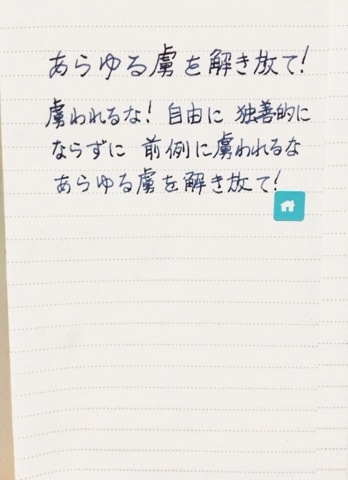 あらゆる虜を解き放て!
虜われるな! 自由に 独善的に
ならずに 前例に虜われるな
あらゆる虜を解き放て!